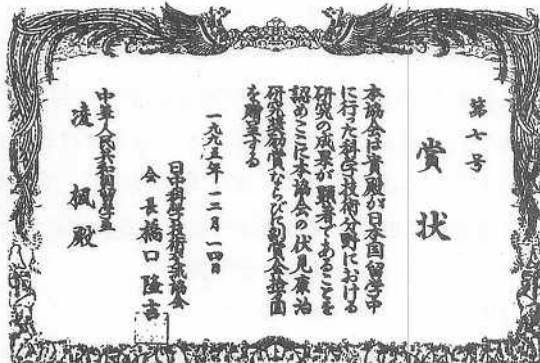 第七号
賞状
本協会は貴殿が日本国留学中
に行った科学技術分野における
研究の成果が顕著であることを
認めここに本協会の伏見康治
研究奨励賞ならびに副賞金拾万円
を贈呈する
一九九五年一二月一四日
日中科学技術交流協会
会長橋口隆吉
中華人民共和国留学生
凌楓殿